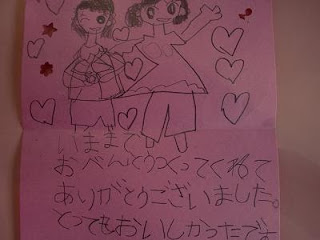 いままで
おべんとうつくってくれて
ありがとうございました
とってもおいしかったです